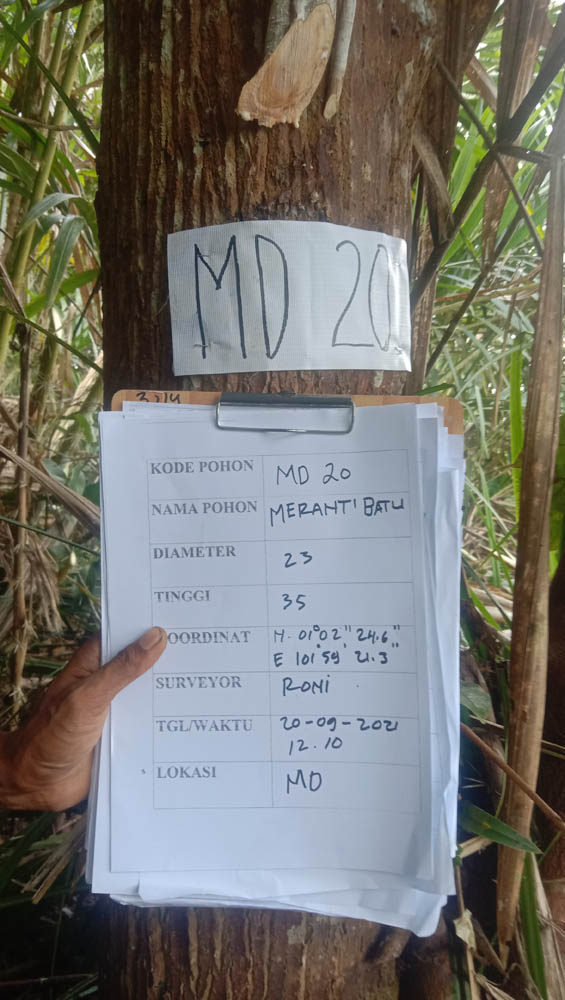 MD 20
KODE POHON MD 20
NAMA POHON MERANTI BATU
DIAMETER 23
TINGGI 35
OORDINAT N. 01° 02" 24.6"
E 101° 59' 21.3"
SURVEYOR RONI
TGL/WAKTU 20-09-2021
12.10
LOKASI MD